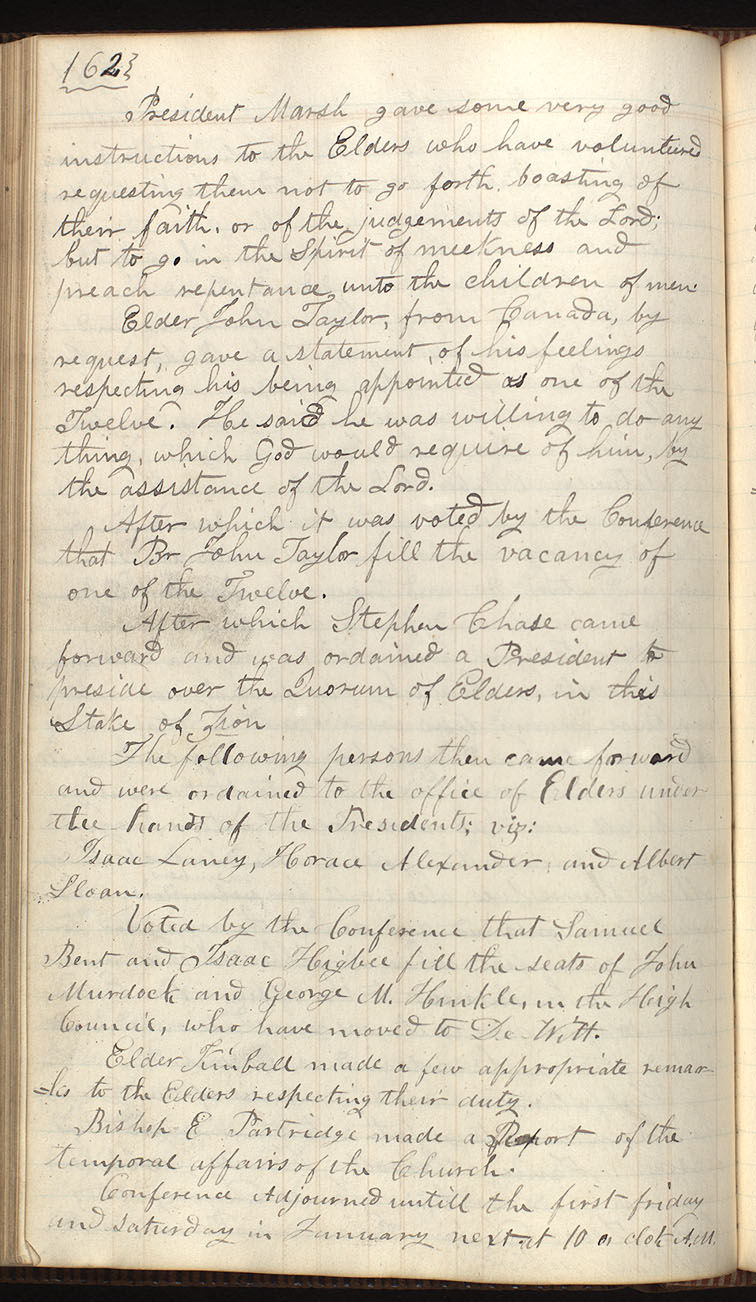 162
President Marsh gave some very good
instructions to the Elders who have voluntured
requesting them not to go forth, boasting of
their faith, or of the judgements of the Lord;
but to go in the Spirit of meekness and
preach repentance unto the children of men.
Elder John Taylor, from Canada, by
request, gave a statement, of his feelings
respecting his being appointed as one of the
Twelve. He said he was willing to do any
thing, which God would require of him, by
the assistance of the Lord.
After which it was voted by the Conference
that Br John Taylor fill the vacancy of
one of the Twelve.
After which Stephen Chase came
forward and was ordained a President to
preside over the Quorum of Elders, in this
Stake of Zion
The following persons then came forward
and were ordained to the office of Elders under
the hands of the Presidents; viz:
Isaac Laney, Horace Alexander, and Albert
Sloan.
Voted by the Conference that Samuel
Bent and Isaac Higbee fill the seats of John
Murdock and George M. Hinkle, in the High
Council, who have moved to De Witt.
Elder Kimball made a few appropriate remar-
=ks to the Elders respecting their duty.
Bishop E Partridge made a Report of the
temporal affairs of the Church.
Conference Adjourned untill the first friday
and saturday in January next at 10 o clok A.M.